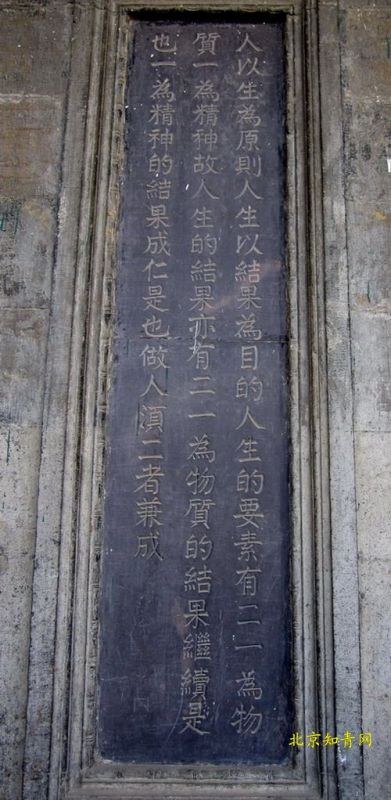 人以生為原則人生以結果為目的人生的要素有二一為物
質一為精神故人生的結果亦有二一為物質的結果繼續是
也一為精神的結果成仁是也做人須二者兼成
北京知青网